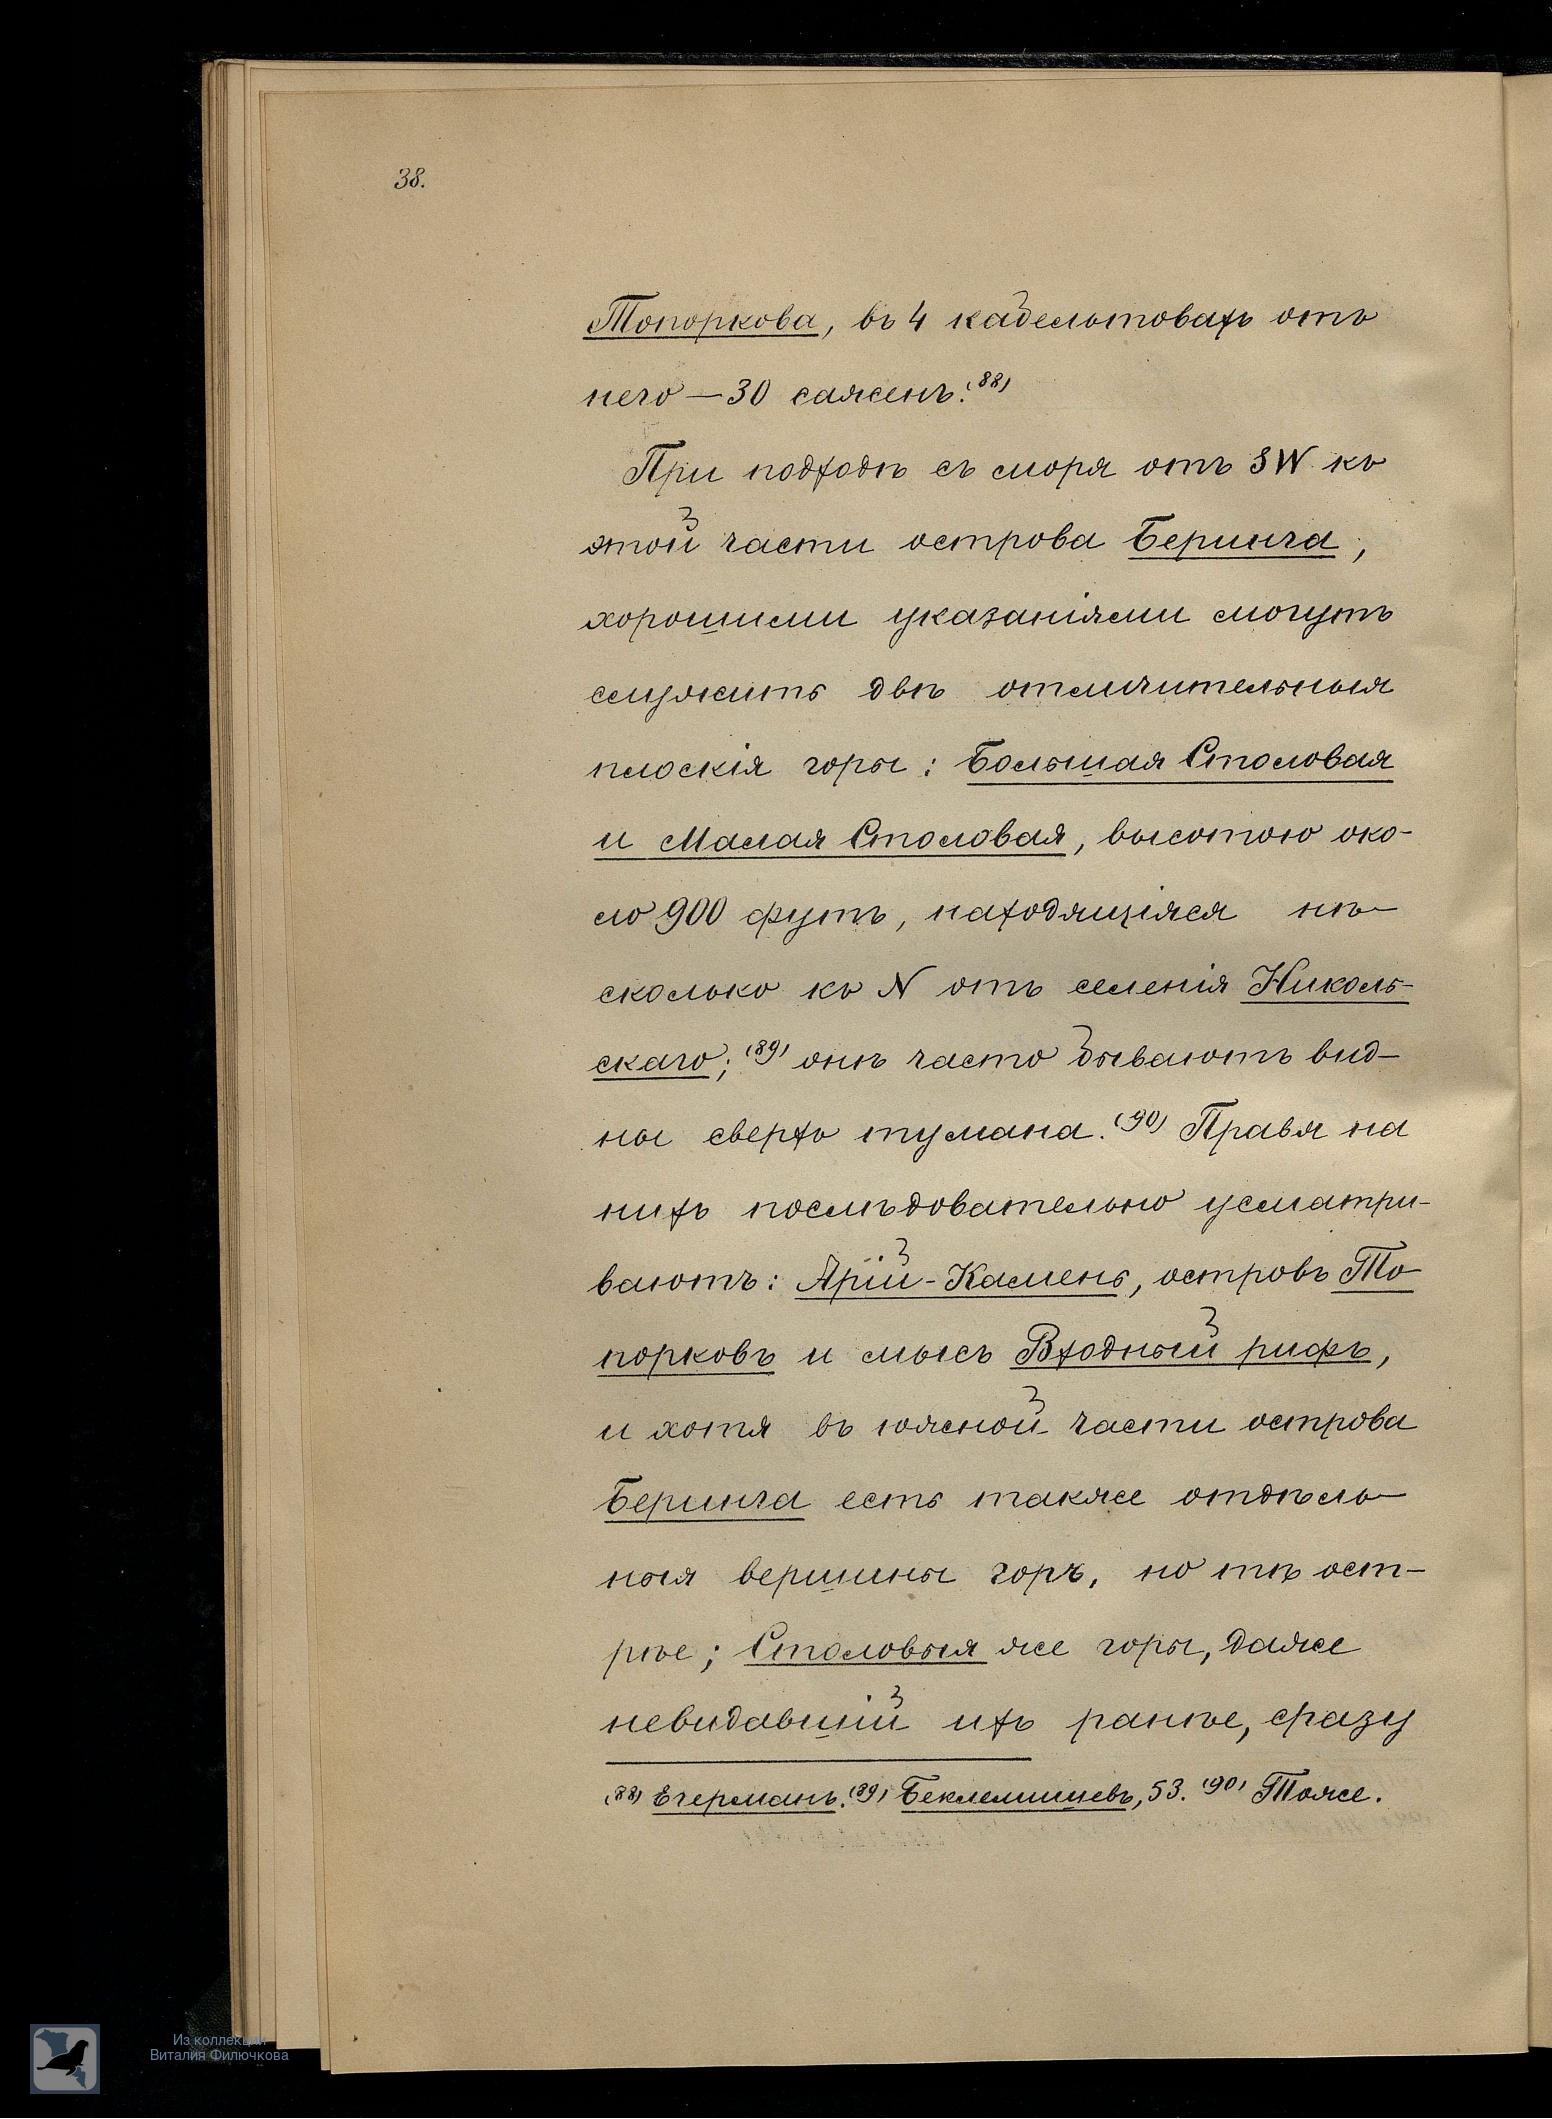 38.
Топоркова, въ 4 кабельтовахъ отъ
него — 30 саженъ.(88)
При подходѣ съ моря отъ SW къ
этой части острова Беринга,
хорошими указаніями могутъ
служить двѣ отличительныя
плоскія горы: Большая Столовая
и Малая Столовая, высотою око-
ло 900 футъ, находящіяся нѣ-
сколько къ N отъ селенія Николь-
скаго;(89) онѣ часто бываютъ вид-
ны сверхъ тумана.(90) Правя на
нихъ послѣдовательно усматри-
ваютъ: Арій-Камень, островъ То-
порковъ и мысъ Входный рифъ,
и хотя въ южной части острова
Беринга есть также отдѣль-
ныя вершины горъ, но тѣ ост-
рѣе; Столовыя же горы, даже
невидавшій ихъ ранѣе, сразу
(88) Егерманъ. (89) Беклемишевъ, 53. (90) Тоже.
Из коллекции
Виталия Филючкова